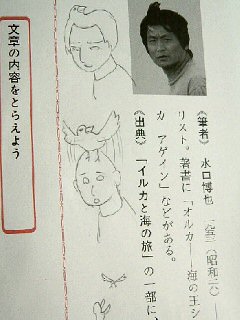 《筆者》 水口博也 一九五三(昭和二八)—
リスト。著書に「オルカ——海の王シ
カ アゲメン」などがある。
《出典》 「イルカと海の旅」の一部に、
文章の内容をとらえよう